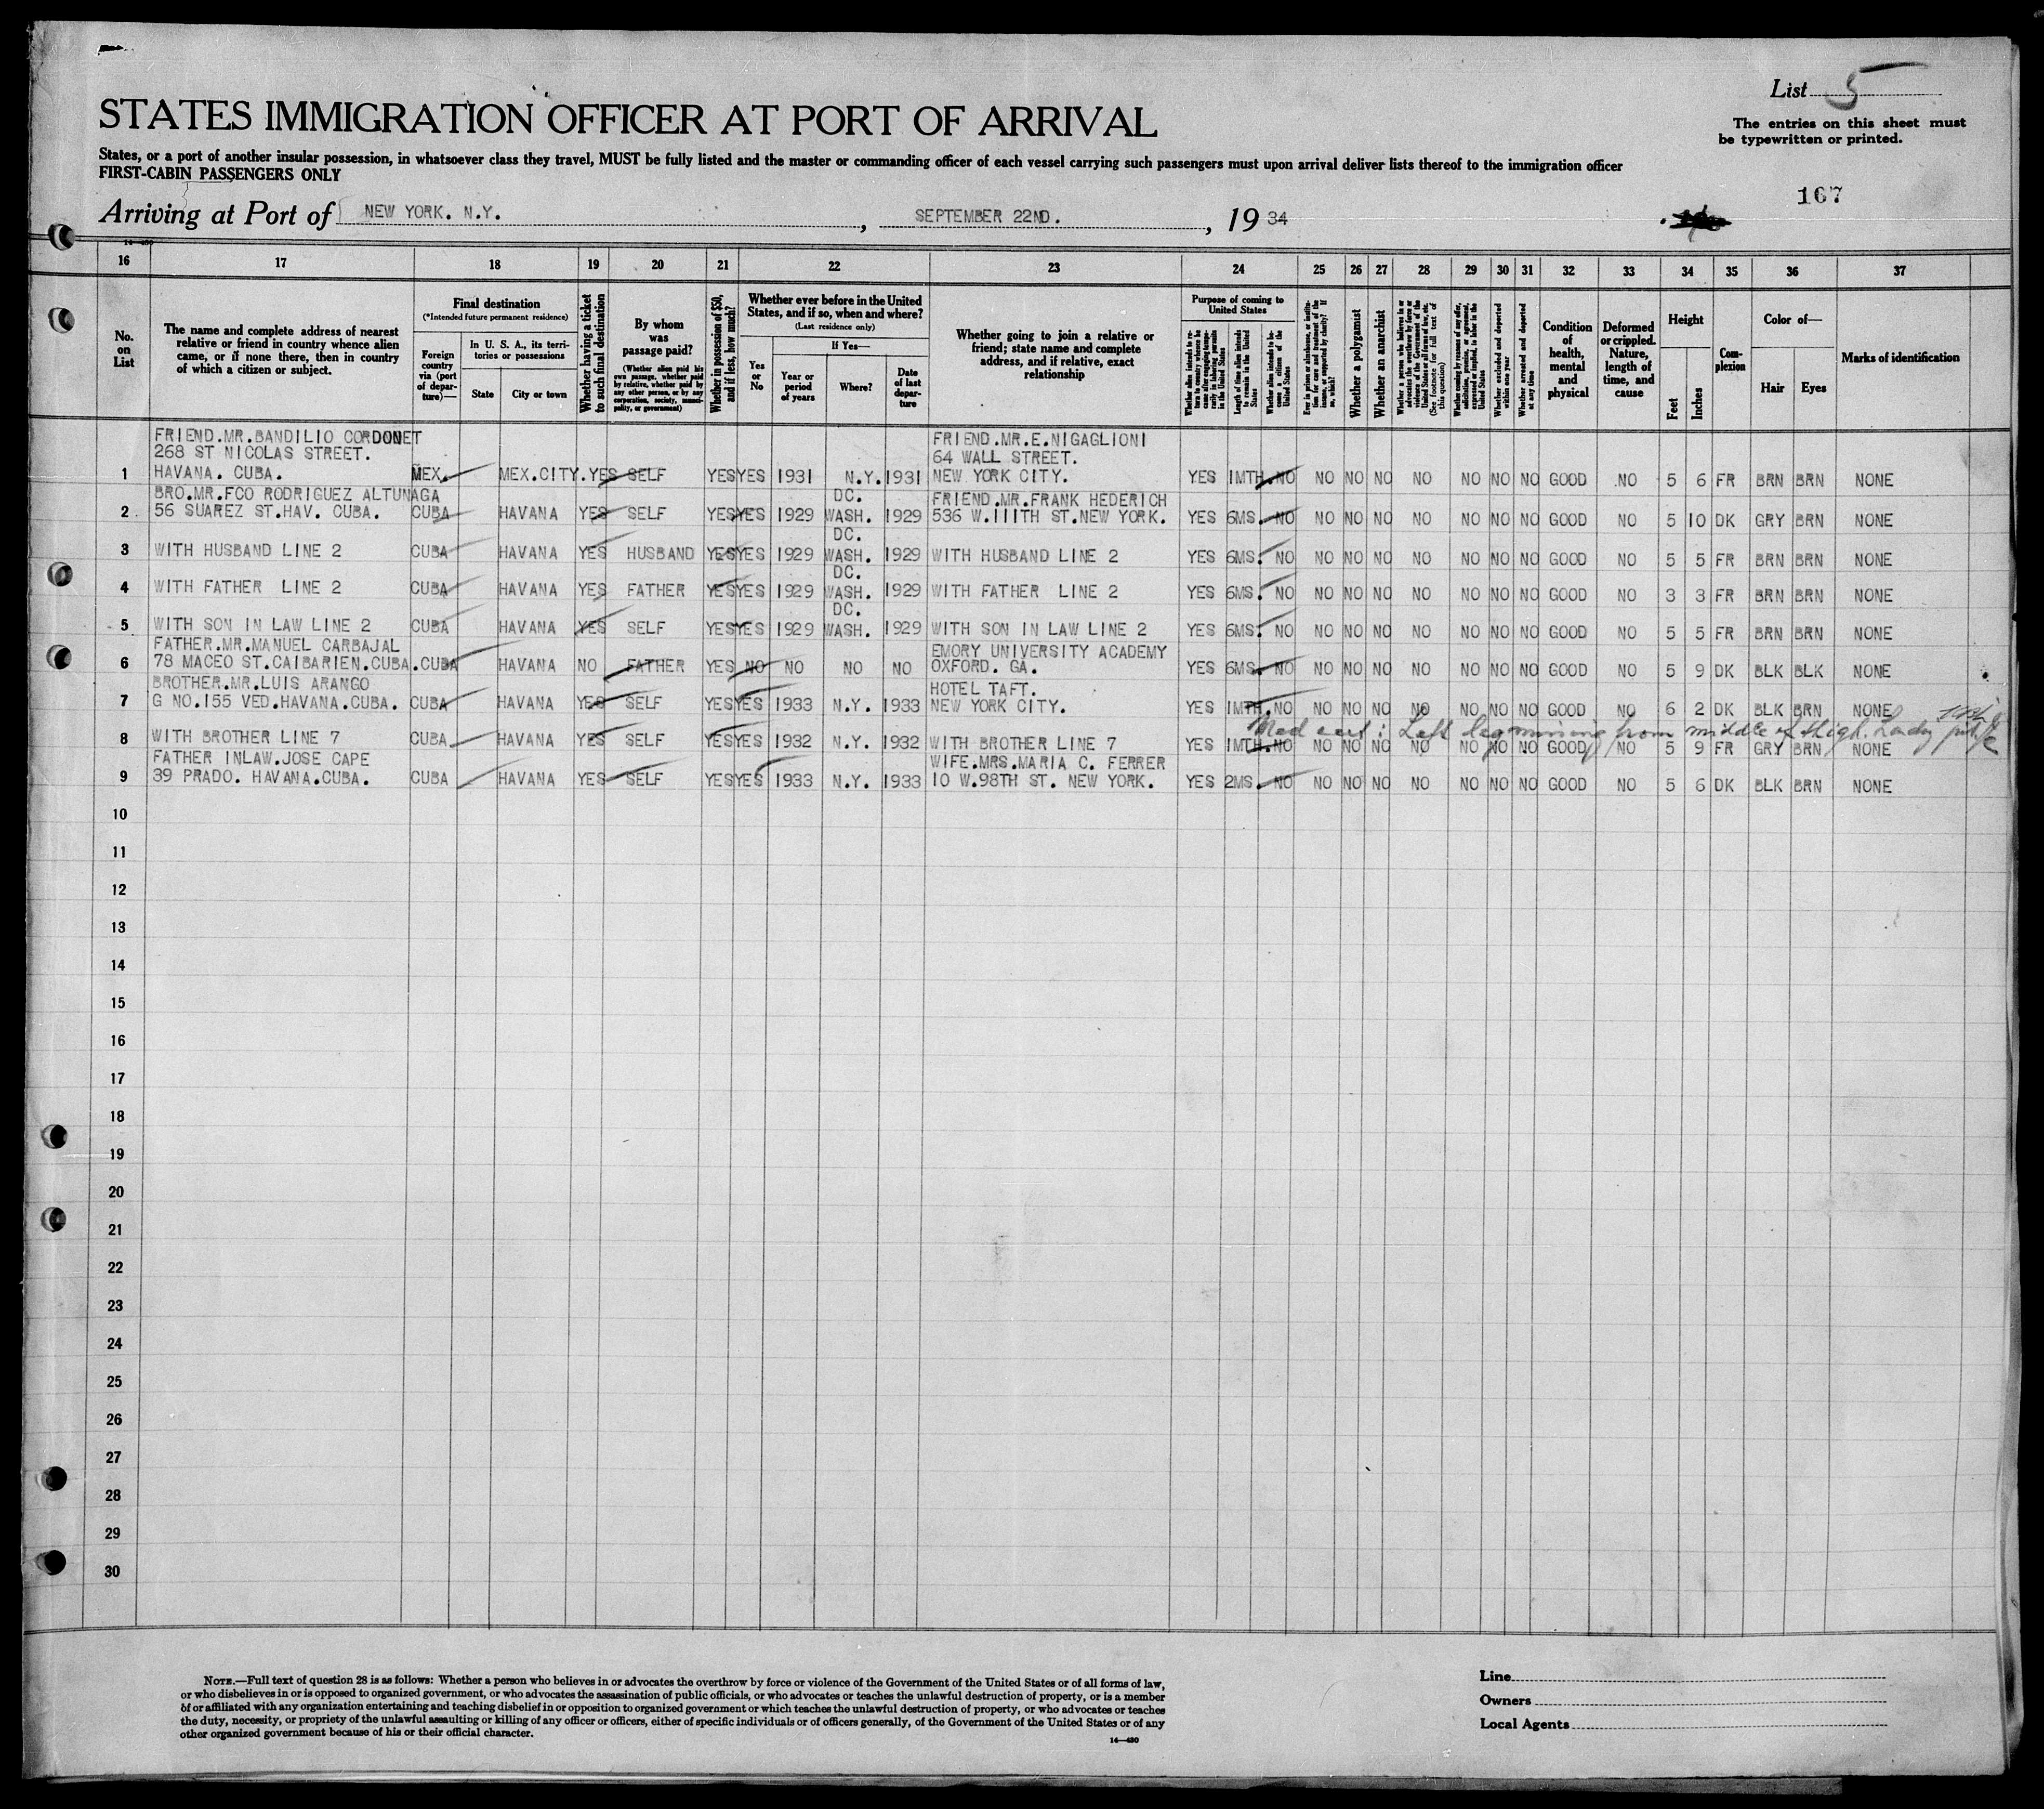 List 5
STATES IMMIGRATION OFFICER AT PORT OF ARRIVAL
The entries on this sheet must
be typewritten or printed.
States, or a port of another insular possession, in whatsoever class they travel, MUST be fully listed and the master or commanding officer of each vessel carrying such passengers must upon arrival deliver lists thereof to the immigration officer
FIRST-CABIN PASSENGERS ONLY
167
Arriving at Port of NEW YORK. N.Y. , SEPTEMBER 22ND. , 19 34
14—430
16 17 18 19 20 21 22 23 24 25 26 27 28 29 30 31 32 33 34 35 36 37
No. on List
The name and complete address of nearest
relative or friend in country whence alien
came, or if none there, then in country
of which a citizen or subject.
Final destination
(*Intended future permanent residence)
Foreign country via (port of departure)—
In U. S. A., its territories or possessions
State
City or town
Whether having a ticket to such final destination
By whom was passage paid?
(Whether alien paid his own passage, whether paid by relative, whether paid by any other person, or by any corporation, society, municipality, or government)
Whether in possession of $50, and if less, how much?
Whether ever before in the United States, and if so, when and where?
(Last residence only)
Yes or No
If Yes—
Year or period of years
Where?
Date of last departure
Whether going to join a relative or
friend; state name and complete
address, and if relative, exact
relationship
Purpose of coming to United States
Whether alien intends to return to country whence he came after engaging temporarily in laboring pursuits in the United States
Length of time alien intends to remain in the United States
Whether alien intends to become a citizen of the United States
Ever in prison or almshouse, or institution for care and treatment of the insane, or supported by charity? If so, which?
Whether a polygamist
Whether an anarchist
Whether a person who believes in or advocates the overthrow by force or violence of the Government of the United States or all forms of law, etc. (See footnote for full text of this question)
Whether coming by reason of any offer, solicitation, promise, or agreement, expressed or implied, to labor in the United States
Whether excluded and deported within one year
Whether arrested and deported at any time
Condition of health, mental and physical
Deformed or crippled. Nature, length of time, and cause
Height
Feet
Inches
Complexion
Color of—
Hair
Eyes
Marks of identification
FRIEND.MR.BANDILIO CORDONET FRIEND.MR.E.NIGAGLIONI
268 ST NICOLAS STREET. 64 WALL STREET.
1 HAVANA. CUBA. MEX. MEX.CITY. YES SELF YES YES 1931 N.Y. 1931 NEW YORK CITY. YES 1MTH. NO NO NO NO NO NO NO NO GOOD NO 5 6 FR BRN BRN NONE
BRO.MR.FCO RODRIGUEZ ALTUNAGA DC. FRIEND.MR.FRANK HEDERICH
2 56 SUAREZ ST.HAV. CUBA. CUBA HAVANA YES SELF YES YES 1929 WASH. 1929 536 W.111TH ST.NEW YORK. YES 6MS. NO NO NO NO NO NO NO NO GOOD NO 5 10 DK GRY BRN NONE
DC.
3 WITH HUSBAND LINE 2 CUBA HAVANA YES HUSBAND YES YES 1929 WASH. 1929 WITH HUSBAND LINE 2 YES 6MS. NO NO NO NO NO NO NO NO GOOD NO 5 5 FR BRN BRN NONE
DC.
4 WITH FATHER LINE 2 CUBA HAVANA YES FATHER YES YES 1929 WASH. 1929 WITH FATHER LINE 2 YES 6MS. NO NO NO NO NO NO NO NO GOOD NO 3 3 FR BRN BRN NONE
DC.
5 WITH SON IN LAW LINE 2 CUBA HAVANA YES SELF YES YES 1929 WASH. 1929 WITH SON IN LAW LINE 2 YES 6MS. NO NO NO NO NO NO NO NO GOOD NO 5 5 FR BRN BRN NONE
FATHER.MR.MANUEL CARBAJAL EMORY UNIVERSITY ACADEMY
6 78 MACEO ST.CAIBARIEN.CUBA. CUBA HAVANA NO FATHER YES NO NO NO NO OXFORD. GA. YES 6MS. NO NO NO NO NO NO NO NO GOOD NO 5 9 DK BLK BLK NONE
BROTHER.MR.LUIS ARANGO HOTEL TAFT.
7 G NO.155 VED.HAVANA.CUBA. CUBA HAVANA YES SELF YES YES 1933 N.Y. 1933 NEW YORK CITY. YES 1MTH. NO NO NO NO NO NO NO NO GOOD NO 6 2 DK BLK BRN NONE
Med cert: Left leg missing from middle of thigh.
8 WITH BROTHER LINE 7 CUBA HAVANA YES SELF YES YES 1932 N.Y. 1932 WITH BROTHER LINE 7 YES 1MTH. NO NO NO NO NO NO NO NO GOOD NO 5 9 FR GRY BRN NONE
FATHER INLAW.JOSE CAPE WIFE.MRS.MARIA C. FERRER
9 39 PRADO. HAVANA.CUBA. CUBA HAVANA YES SELF YES YES 1933 N.Y. 1933 10 W.98TH ST. NEW YORK. YES 2MS. NO NO NO NO NO NO NO NO GOOD NO 5 6 DK BLK BRN NONE
10
11
12
13
14
15
16
17
18
19
20
21
22
23
24
25
26
27
28
29
30
NOTE.—Full text of question 28 is as follows: Whether a person who believes in or advocates the overthrow by force or violence of the Government of the United States or of all forms of law,
or who disbelieves in or is opposed to organized government, or who advocates the assassination of public officials, or who advocates or teaches the unlawful destruction of property, or is a member
of or affiliated with any organization entertaining and teaching disbelief in or opposition to organized government or which teaches the unlawful destruction of property, or who advocates or teaches
the duty, necessity, or propriety of the unlawful assaulting or killing of any officer or officers, either of specific individuals or of officers generally, of the Government of the United States or of any
other organized government because of his or their official character.
14—430
Line
Owners
Local Agents